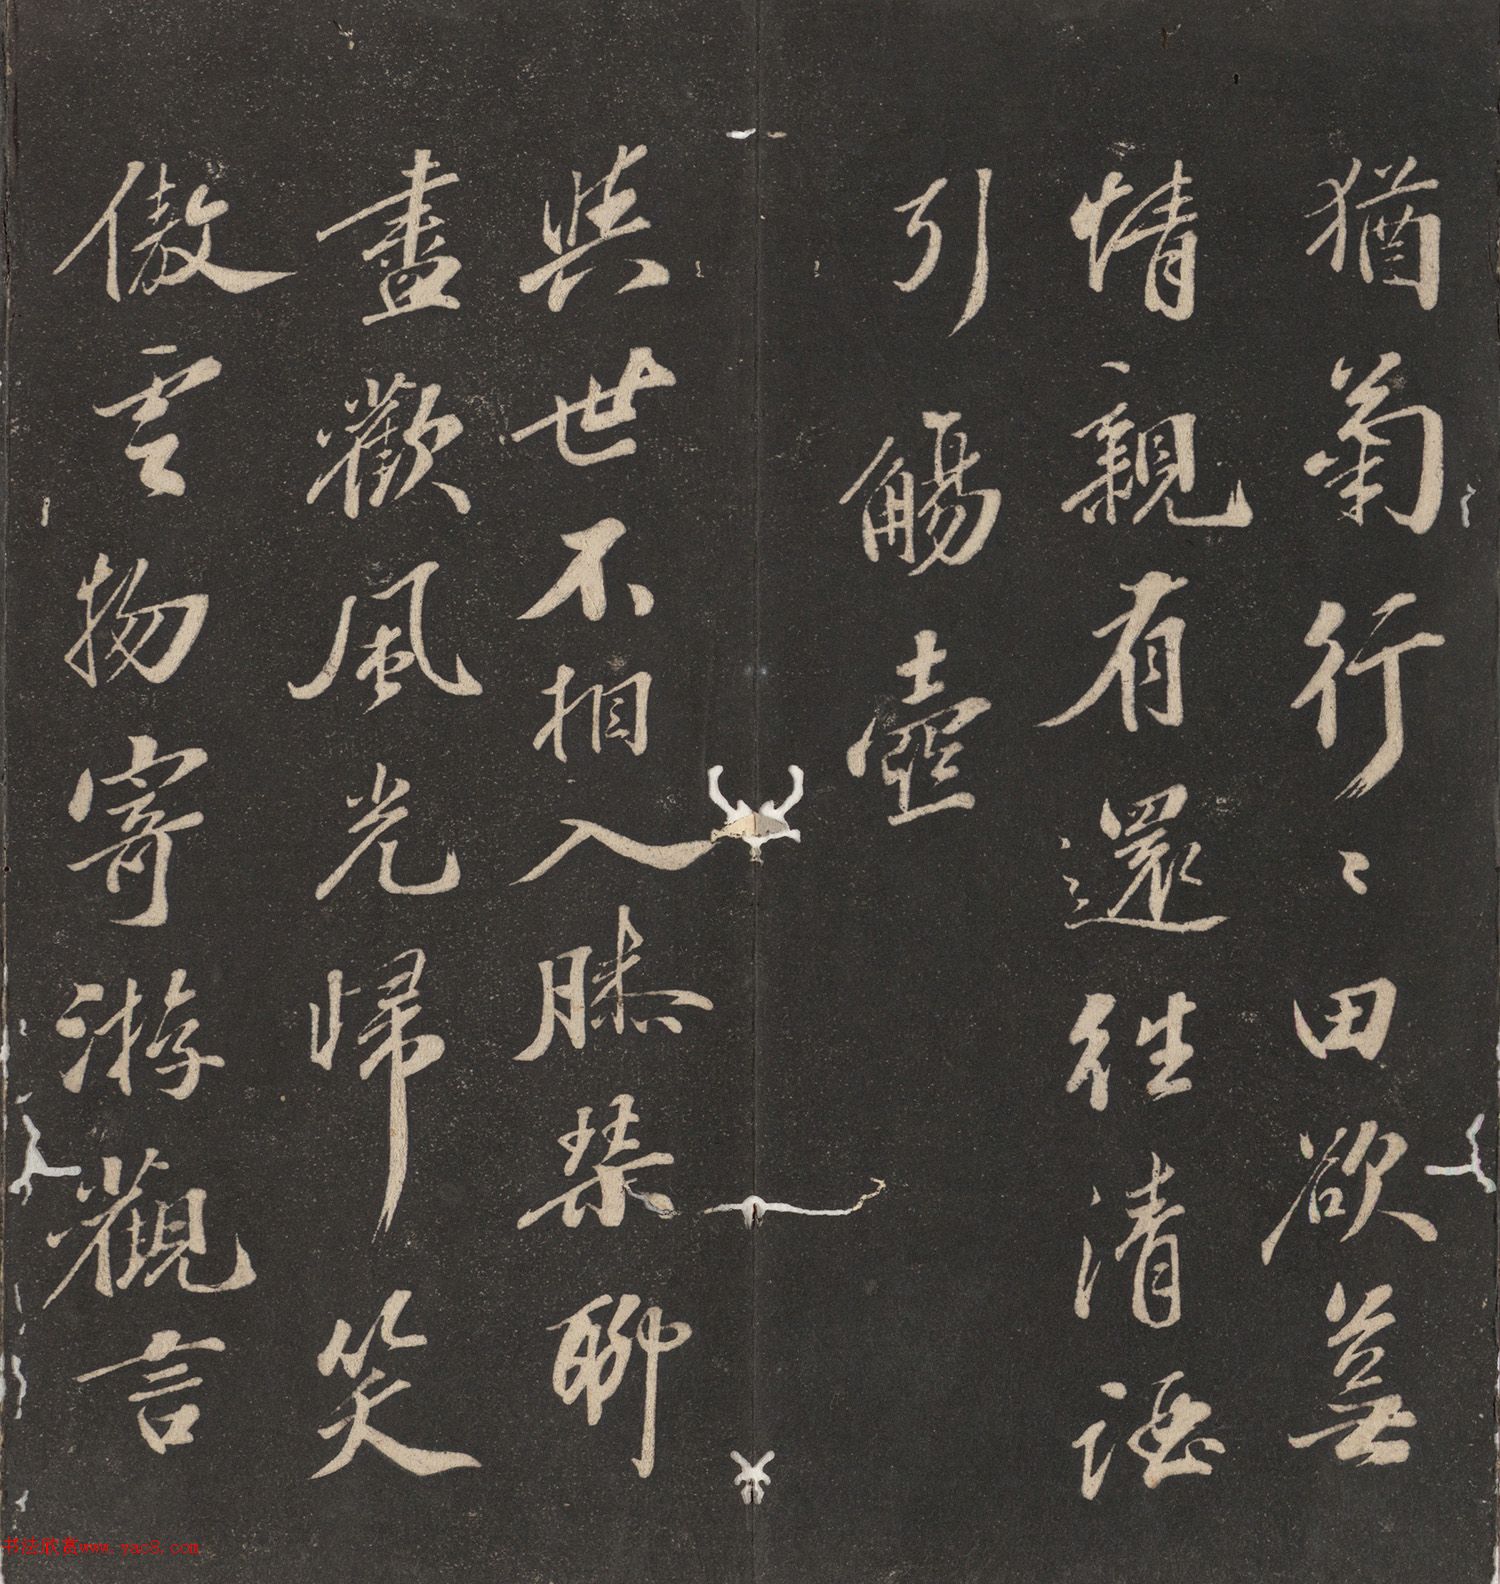 猶菊行〻田欲蕪
情親有還往清酒
引觴壺
與世不相入膝琴聊
盡歡風光歸笑
傲雲物寄游觀言
书法欣赏www.yac8.com